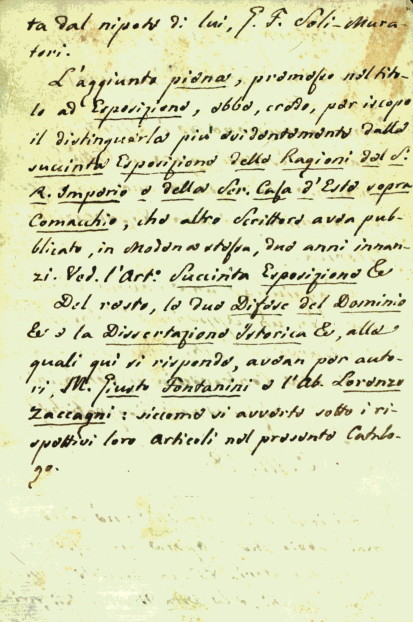 ta dal nipote di lui, G. F. Soli-Mura-
tori.
L'aggiunto piena, premesso nel tito-
lo ad Esposizione, ebbe, credo, per iscopo
il distinguerla più evidentemente dalla
succinta Esposizione delle Ragioni del S.
R. Imperio e della Ser. Casa d'Este sopra
Comacchio, che altro Scrittore avea pub-
blicato, in Modena stessa, due anni innan-
zi. Ved. l'Art.o Succinta Esposizione &c
Del resto, le due Difese del Dominio
&c e la Dissertazione Istorica &c, alle
quali qui si risponde, avean per auto-
ri, M. Giusto Fontanini e l'Ab. Lorenzo
Zaccagni: siccome si avverte sotto i ri-
spettivi loro Articoli nel presente Catalo-
go.